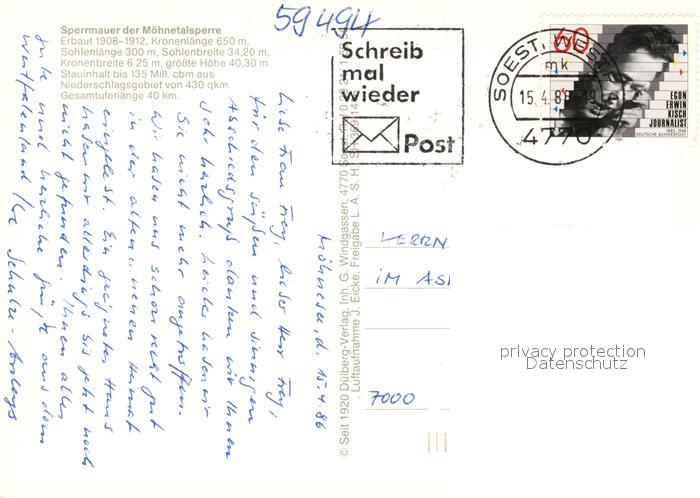 59494
Sperrmauer der Möhnetalsperre
Erbaut 1908–1912, Kronenlänge 650 m,
Sohlenlänge 300 m, Sohlenbreite 34,20 m,
Kronenbreite 6,25 m, größte Höhe 40,30 m.
Stauinhalt bis 135 Mill. cbm aus
Niederschlagsgebiet von 430 qkm.
Gesamtuferlänge 40 km.
Schreib
mal
wieder
Post
SOEST, WESTF
mk
15.4.86-19
4770
60
EGON
ERWIN
KISCH
JOURNALIST
1885-1948
DEUTSCHE BUNDESPOST
Möhnesee, d. 15.4.86
Liebe Frau Frey, lieber Herr Frey,
für den süßen und sinnigen
Abschiedsgruß danken wir Ihnen
sehr herzlich. Leider haben wir
Sie nicht mehr angetroffen.
Wir haben uns schon recht gut
in der alten u. neuen Heimat
eingelebt. Ein geeignetes Haus
haben wir allerdings bis jetzt noch
nicht gefunden. Ihnen alles
Gute und herzliche Grüße aus dem
Westfalenland Ihr Schulze-
© Seit 1920 Dülberg-Verlag, Inh. G. Windgassen, 4770 Soest
Luftaufnahme J. Eicke, Freigabe L. A. S. H.
HERRN
IM
7000
privacy protection
Datenschutz